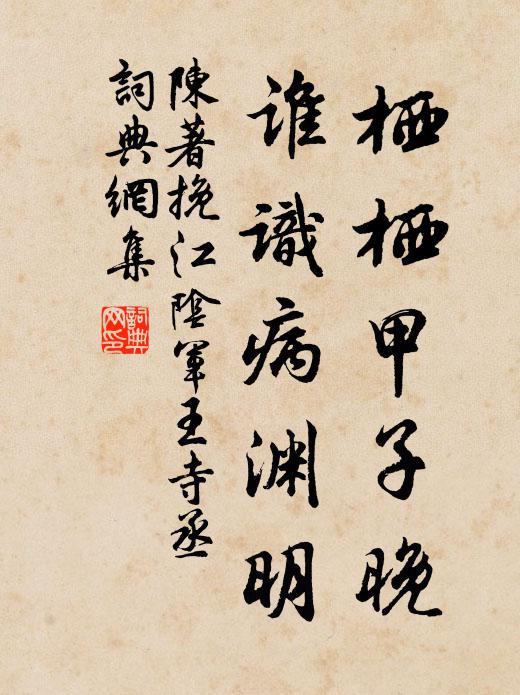 栖栖甲子晚
谁識病渊明
陳著挽江陰軍王寺丞
詞典網集
詞典网印